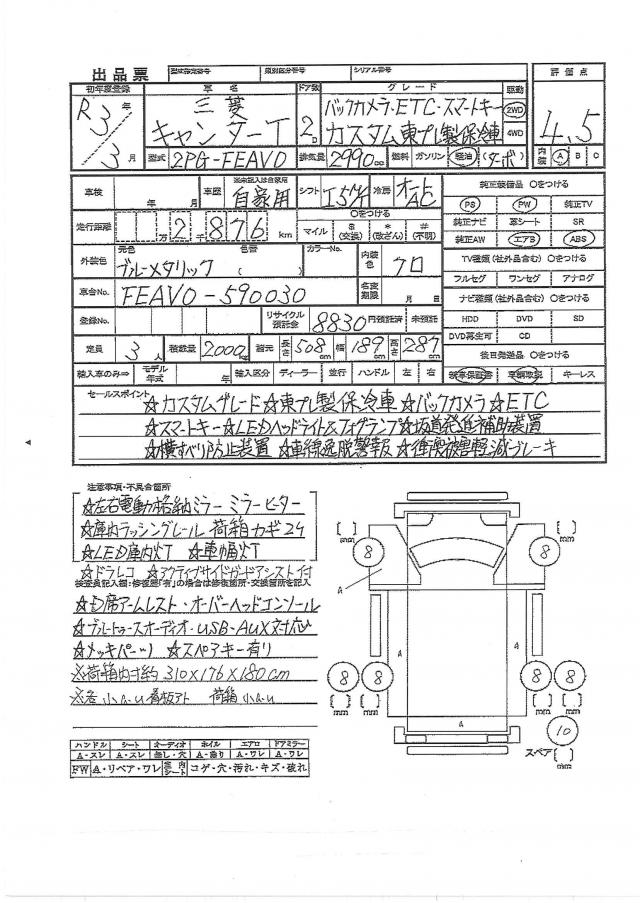 出品票 型式指定番号 類別区分番号 シリアル番号
初年度登録 車名 ドア数 グレード 駆動 評価点
R3年 三菱 バックカメラ・ETC・スマートキー 2WD
キャンターT 2D カスタム東プレ製保冷車 4WD 4.5
3月 型式 2PG-FEAV0 排気量 2990cc 燃料 ガソリン 軽油 (ターボ) 内装 A B C
車検 年 月 車歴 ※未記入は自家用 自家用 シフト I5M/T 冷房 オートAC 純正装備品 ○をつける
PS PW 純正TV
走行距離 万 2千876km ○をつける マイル $(交換) *(改ざん) #(不明) 純正ナビ 革シート SR
純正AW エアB ABS
外装色 元色 色替 カラーNo. 内装色 クロ TV種類(社外品含む) ○をつける
ブルーメタリック ( ) フルセグ ワンセグ アナログ
車台No. FEAV0-590030 名変期限 月 日 ナビ種類(社外品含む) ○をつける
HDD DVD SD
登録No. リサイクル預託金 8830円預託済 未預託 DVD再生可 CD
定員 3人 積載量 2000kg 諸元 長さ508cm 幅189cm 高さ287cm 後日発送品 ○をつける
輸入車のみ⇒ モデル年式 年 輸入区分 ディーラー 並行 ハンドル 左 右 新車保証書 車輌取説 キーレス
セールスポイント
☆カスタムグレード☆東プレ製保冷車☆バックカメラ☆ETC
☆スマートキー☆LEDヘッドライト&フォグランプ☆坂道発進補助装置
☆横すべり防止装置 ☆車線逸脱警報 ☆衝突被害軽減ブレーキ
注意事項・不具合箇所
☆左右電動格納ミラー ミラーヒーター
☆庫内ラッシングレール 荷箱カギ2ケ
☆LED庫内灯T ☆車幅灯T
☆ドラレコ ☆アクティブサイドガードアシスト付
検査員記入欄:修復歴「有」の場合は修復箇所・交換箇所を記入
☆D席アームレスト・オーバーヘッドコンソール
☆ブルートゥースオーディオ・USB・AUX対応
☆メッキパーツ ☆スペアキー有り
※荷箱内寸約 310×176×180cm
※各小A.U 看板アト 荷箱小A.U
[ ] mm 8 8 [ ] mm
A A
A A
8 8 8 8
[ ] mm [ ] mm
A 10
スペア [ ] mm
ハンドル シート オーディオ ホイル エアロ ドアミラー
A・スレ A・スレ 無し・穴 A・曲り A・ワレ A・ワレ
FW A・リペア・ワレ 室内シート コゲ・穴・汚れ・キズ・破れ